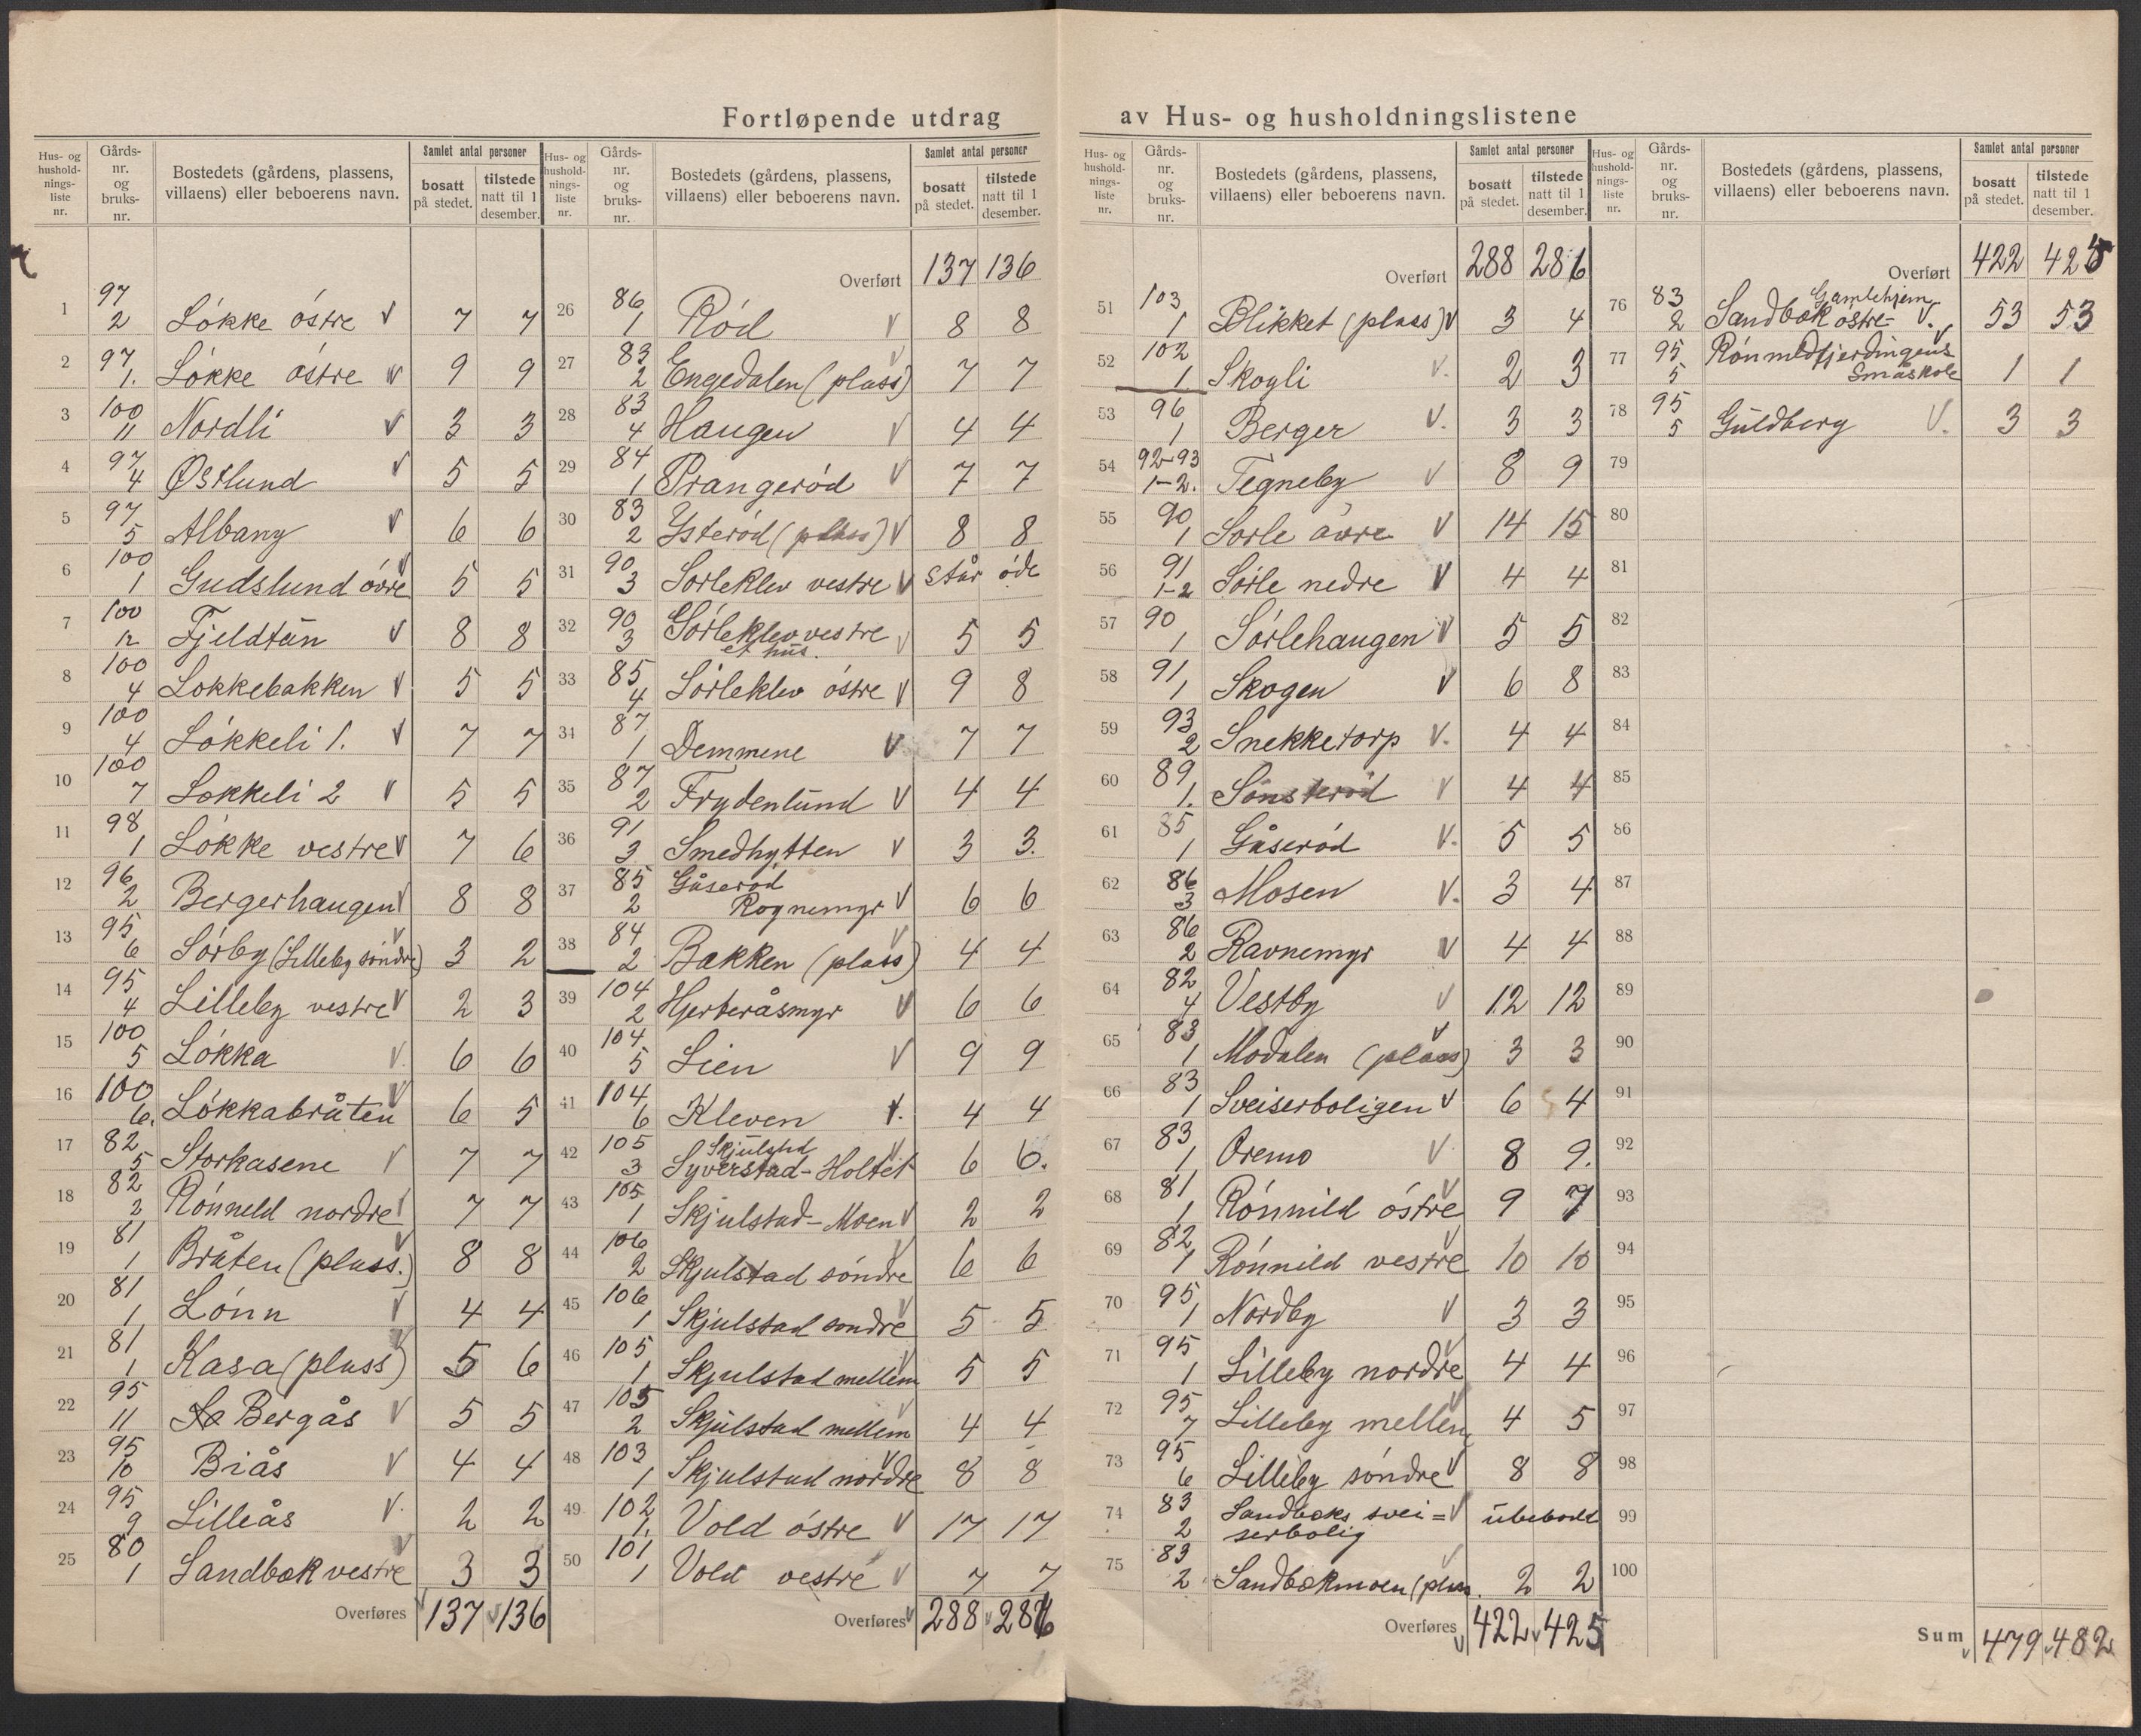 Fortløpende utdrag av Hus- og husholdningslistene
Hus- og hushold-nings-liste nr. Gårds-nr. og bruks-nr. Bostedets (gårdens, plassens, villaens) eller beboerens navn. Samlet antal personer bosatt på stedet. tilstede natt til 1 desember.
1 97 2 Løkke østre V 7 7
2 97 1. Løkke østre V 9 9
3 100 11 Nordli V 3 3
4 97 4 Østlund V 5 5
5 97 5 Albany V 6 6
6 100 1 Gudslund øvre V 5 5
7 100 12 Fjeldtun V 8 8
8 100 4 Løkkebakken V 5 5
9 100 4 Løkkeli 1. V 7 7
10 100 7 Løkkeli 2 V 5 5
11 98 1 Løkke vestre V 7 6
12 96 2 Bergerhaugen V 8 8
13 95 6 Sørby (Lilleby søndre) V 3 2
14 95 4 Lilleby vestre V 2 3
15 100 5 Løkka V 6 6
16 100 6. Løkkabråten V 6 5
17 82 5 Storkasene V 7 7
18 82 2 Rønneld nordre V 7 7
19 81 1 Bråten (plass.) V 8 8
20 81 1 Lønn V 4 4
21 81 1 Kasa (plass) V 5 6
22 95 11 Bergås V 5 5
23 95 10 Briås V 4 4
24 95 9 Lilleås V. 2 2
25 80 1 Sandbæk vestre V 3 3
Overføres 137 136
Hus- og hushold-nings-liste nr. Gårds-nr. og bruks-nr. Bostedets (gårdens, plassens, villaens) eller beboerens navn. Samlet antal personer bosatt på stedet. tilstede natt til 1 desember.
Overført 137 136
26 86 1 Rød V 8 8
27 83 2 Engedalen (plass) V 7 7
28 83 4 Haugen V 4 4
29 84 1 Prangerød V 7 7
30 83 2 Ysterød (plass) V 8 8
31 90 3 Sørleklev vestre V står øde
32 90 3 Sørleklev vestre V 5 5
et hus.
33 85 4 Sørleklev østre V 9 8
34 87 1 Demmene V 7 7
35 87 2 Frydenlund V 4 4
36 91 3 Smedhytten V 3 3.
37 85 2 Gåserød
Rognemyr V 6 6
38 84 2 Bakken (plass) V 4 4
39 104 2 Hjerteråsmyr V 6 6
40 104 5 Lien V 9 9
41 104 6 Kleven V. 4 4
42 105 3 Skjulstad
Syverstad-Holtet V 6 6.
43 105 1 Skjulstad-Moen V 2 2
44 106 2 Skjulstad søndre V 6 6
45 106 1 Skjulstad søndre V 5 5
46 105 1 Skjulstad mellem V 5 5
47 105 2 Skjulstad mellem V 4 4
48 103 1 Skjulstad nordre V 8 8
49 102 1. Vold østre V 17 17
50 101 1 Vold vestre V 7 7
Overføres 288 286
Hus- og hushold-nings-liste nr. Gårds-nr. og bruks-nr. Bostedets (gårdens, plassens, villaens) eller beboerens navn. Samlet antal personer bosatt på stedet. tilstede natt til 1 desember.
Overført 288 286
51 103 1 Blikket (plass) V 3 4
52 102 1 Skogli V. 2 3
53 96 1 Berger V. 3 3
54 92-93 1-2. Tegneby V 8 9
55 90 1 Sørle øvre V 14 15
56 91 1-2 Sørle nedre V 4 4
57 90 1 Sørlehaugen V 5 5
58 91 1 Skogen V 6 8
59 93 2 Snekketorp V. 4 4
60 89 1. Sønsterød V 4 4
61 85 1 Gåserød V. 5 5
62 86 3 Mosen V. 3 4
63 86 2 Ravnemyr V 4 4
64 82 4 Vestby V 12 12
65 83 1 Modalen (plass) V 3 3
66 83 1 Sveiserboligen V 6 4
67 83 1 Oremo V. 8 9.
68 81 1 Rønnild østre V 9 7
69 82 1 Rønnild vestre V 10 10
70 95 1 Nordby V 3 3
71 95 1 Lilleby nordre V 4 4
72 95 7 Lilleby mellem V 4 5
73 95 6 Lilleby søndre V 8 8
74 83 2 Sandbæks svei= V ubebodd
serbolig
75 83 2 Sandbækmoen (plass. V 2 2
Overføres 422 425
Hus- og hushold-nings-liste nr. Gårds-nr. og bruks-nr. Bostedets (gårdens, plassens, villaens) eller beboerens navn. Samlet antal personer bosatt på stedet. tilstede natt til 1 desember.
Overført 422 425
76 83 2 Gamlehjem
Sandbæk østre- V. 53 53
77 95 5 Rønnildfjerdingens V
Småskole 1 1
78 95 5 Guldberg V. 3 3
79
80
81
82
83
84
85
86
87
88
89
90
91
92
93
94
95
96
97
98
99
100
Sum 479 482